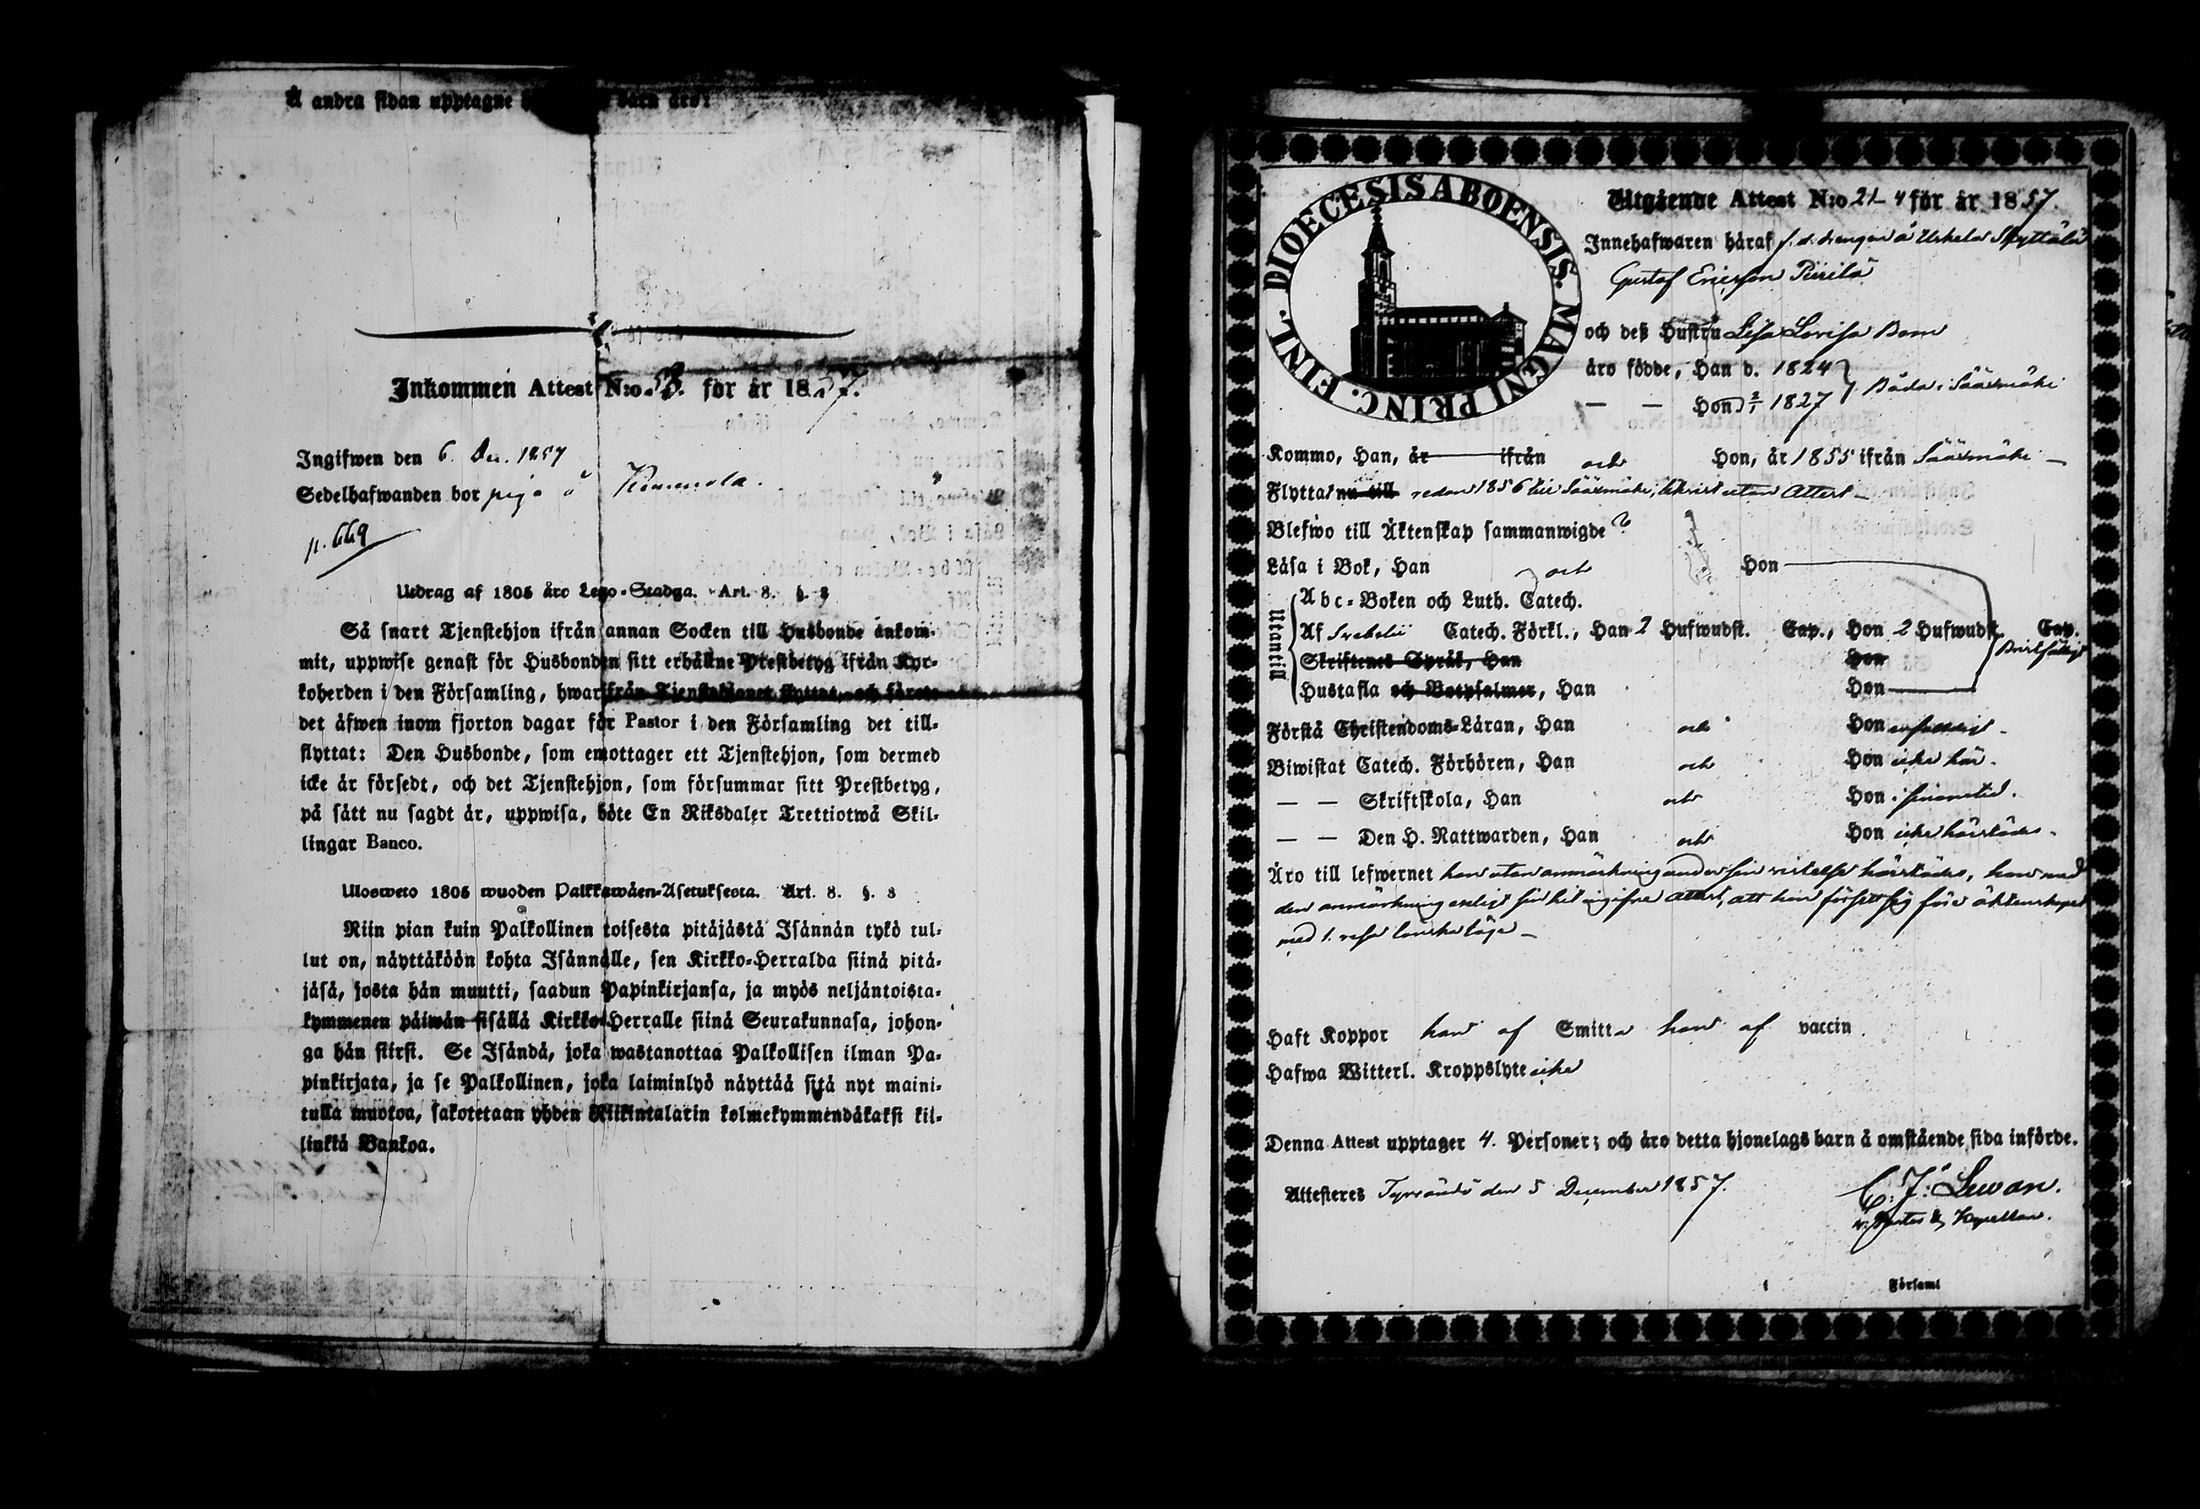 Å andra sidan upptagne barn äro:
Inkommen Attest N:o 53. för år 1857.
Ingifwen den 6 Dec. 1857
Sedelhafwanden bor piga å
p. 669
Utdrag af 1805 års Lego-Stadga. Art. 8. §. 3
Så snart Tjenstehjon ifrån annan Socken till Husbonde ankom-
mit, uppwise genast för Husbonden sitt erhållne Prestbetyg ifrån Kyr-
koherden i den Församling, hwarifrån Tjenstehjonet flyttat, och förete
det äfwen inom fjorton dagar för Pastor i den Församling det till-
flyttat: Den Husbonde, som emottager ett Tjenstehjon, som dermed
icke är försedt, och det Tjenstehjon, som försummar sitt Prestbetyg,
på sätt nu sagdt är, uppwisa, böte En Riksdaler Trettiotwå Skil-
lingar Banco.
Ulosweto 1805 wuoden Palkkawäen-Asetuksesta. Art. 8. §. 3
Niin pian kuin Palkollinen toisesta pitäjästä Isännän tykö tul-
lut on, näyttäköön kohta Isännälle, sen Kirkko-Herralda siinä pitä-
jäsä, josta hän muutti, saadun Papinkirjansa, ja myös neljäntoista-
kymmenen päiwän sisällä Kirkko-Herralle siinä Seurakunnasa, johon-
ga hän siirsi. Se Isändä, joka wastanottaa Palkollisen ilman Pa-
pinkirjata, ja se Palkollinen, joka laiminlyö näyttää sitä nyt maini-
tulla muotoa, sakotetaan yhden Riikintalarin kolmekymmendäkaksi kil-
linkiä Bankoa.
DIOECESIS ABOENSIS. MAGNI PRINC. FINL.
Utgående Attest N:o 21-4 för år 1857.
Innehafwaren häraf f. d. drengen å Urhola Skyttälä
Gustaf Ericsson Pärilä
och deß Hustru Lisa Lovisa
äro födde, Han d. 1824
— — Hon d. 2/1 1827 Båda i Sääxmäki
Kommo, Han, är ifrån och Hon, år 1855 ifrån Sääxmäki —
Flyttat nu till redan 1856 till Sääxmäki, utan Attest —
Blefwo till Äktenskap sammanwigde ?
Läsa i Bok, Han och Hon
Utantill
Abc-Boken och Luth. Catech.
Af Svebelii Catech. Förkl., Han 2 Hufwudst. Cap., Hon 2 Hufwudst. Cap.
Skriftenes Språk, Han Hon
Hustafla och Botpsalmer, Han Hon
Förstå Christendoms-Läran, Han och Hon
Biwistat Catech. Förhören, Han och Hon icke här.
— — Skriftskola, Han och Hon i sinom tid.
— — Den H. Nattwarden, Han och Hon icke härstädes.
Äro till lefwernet han utan anmärkning under sin vistelse härstädes, hon med
den anmärkning enligt sin hit ingifne attest, att hon försett sig före äktenskapet
med 1. resa
Haft Koppor af Smitta af vaccin
Hafwa Witterl. Kroppslyte icke
Denna Attest upptager 4. Personer; och äro detta hjonelags barn å omstående sida införde.
Attesteres Tyrvändö den 5 December 1857.
C: J: Lewan.
v. Pastor & Kapellan.
Församl